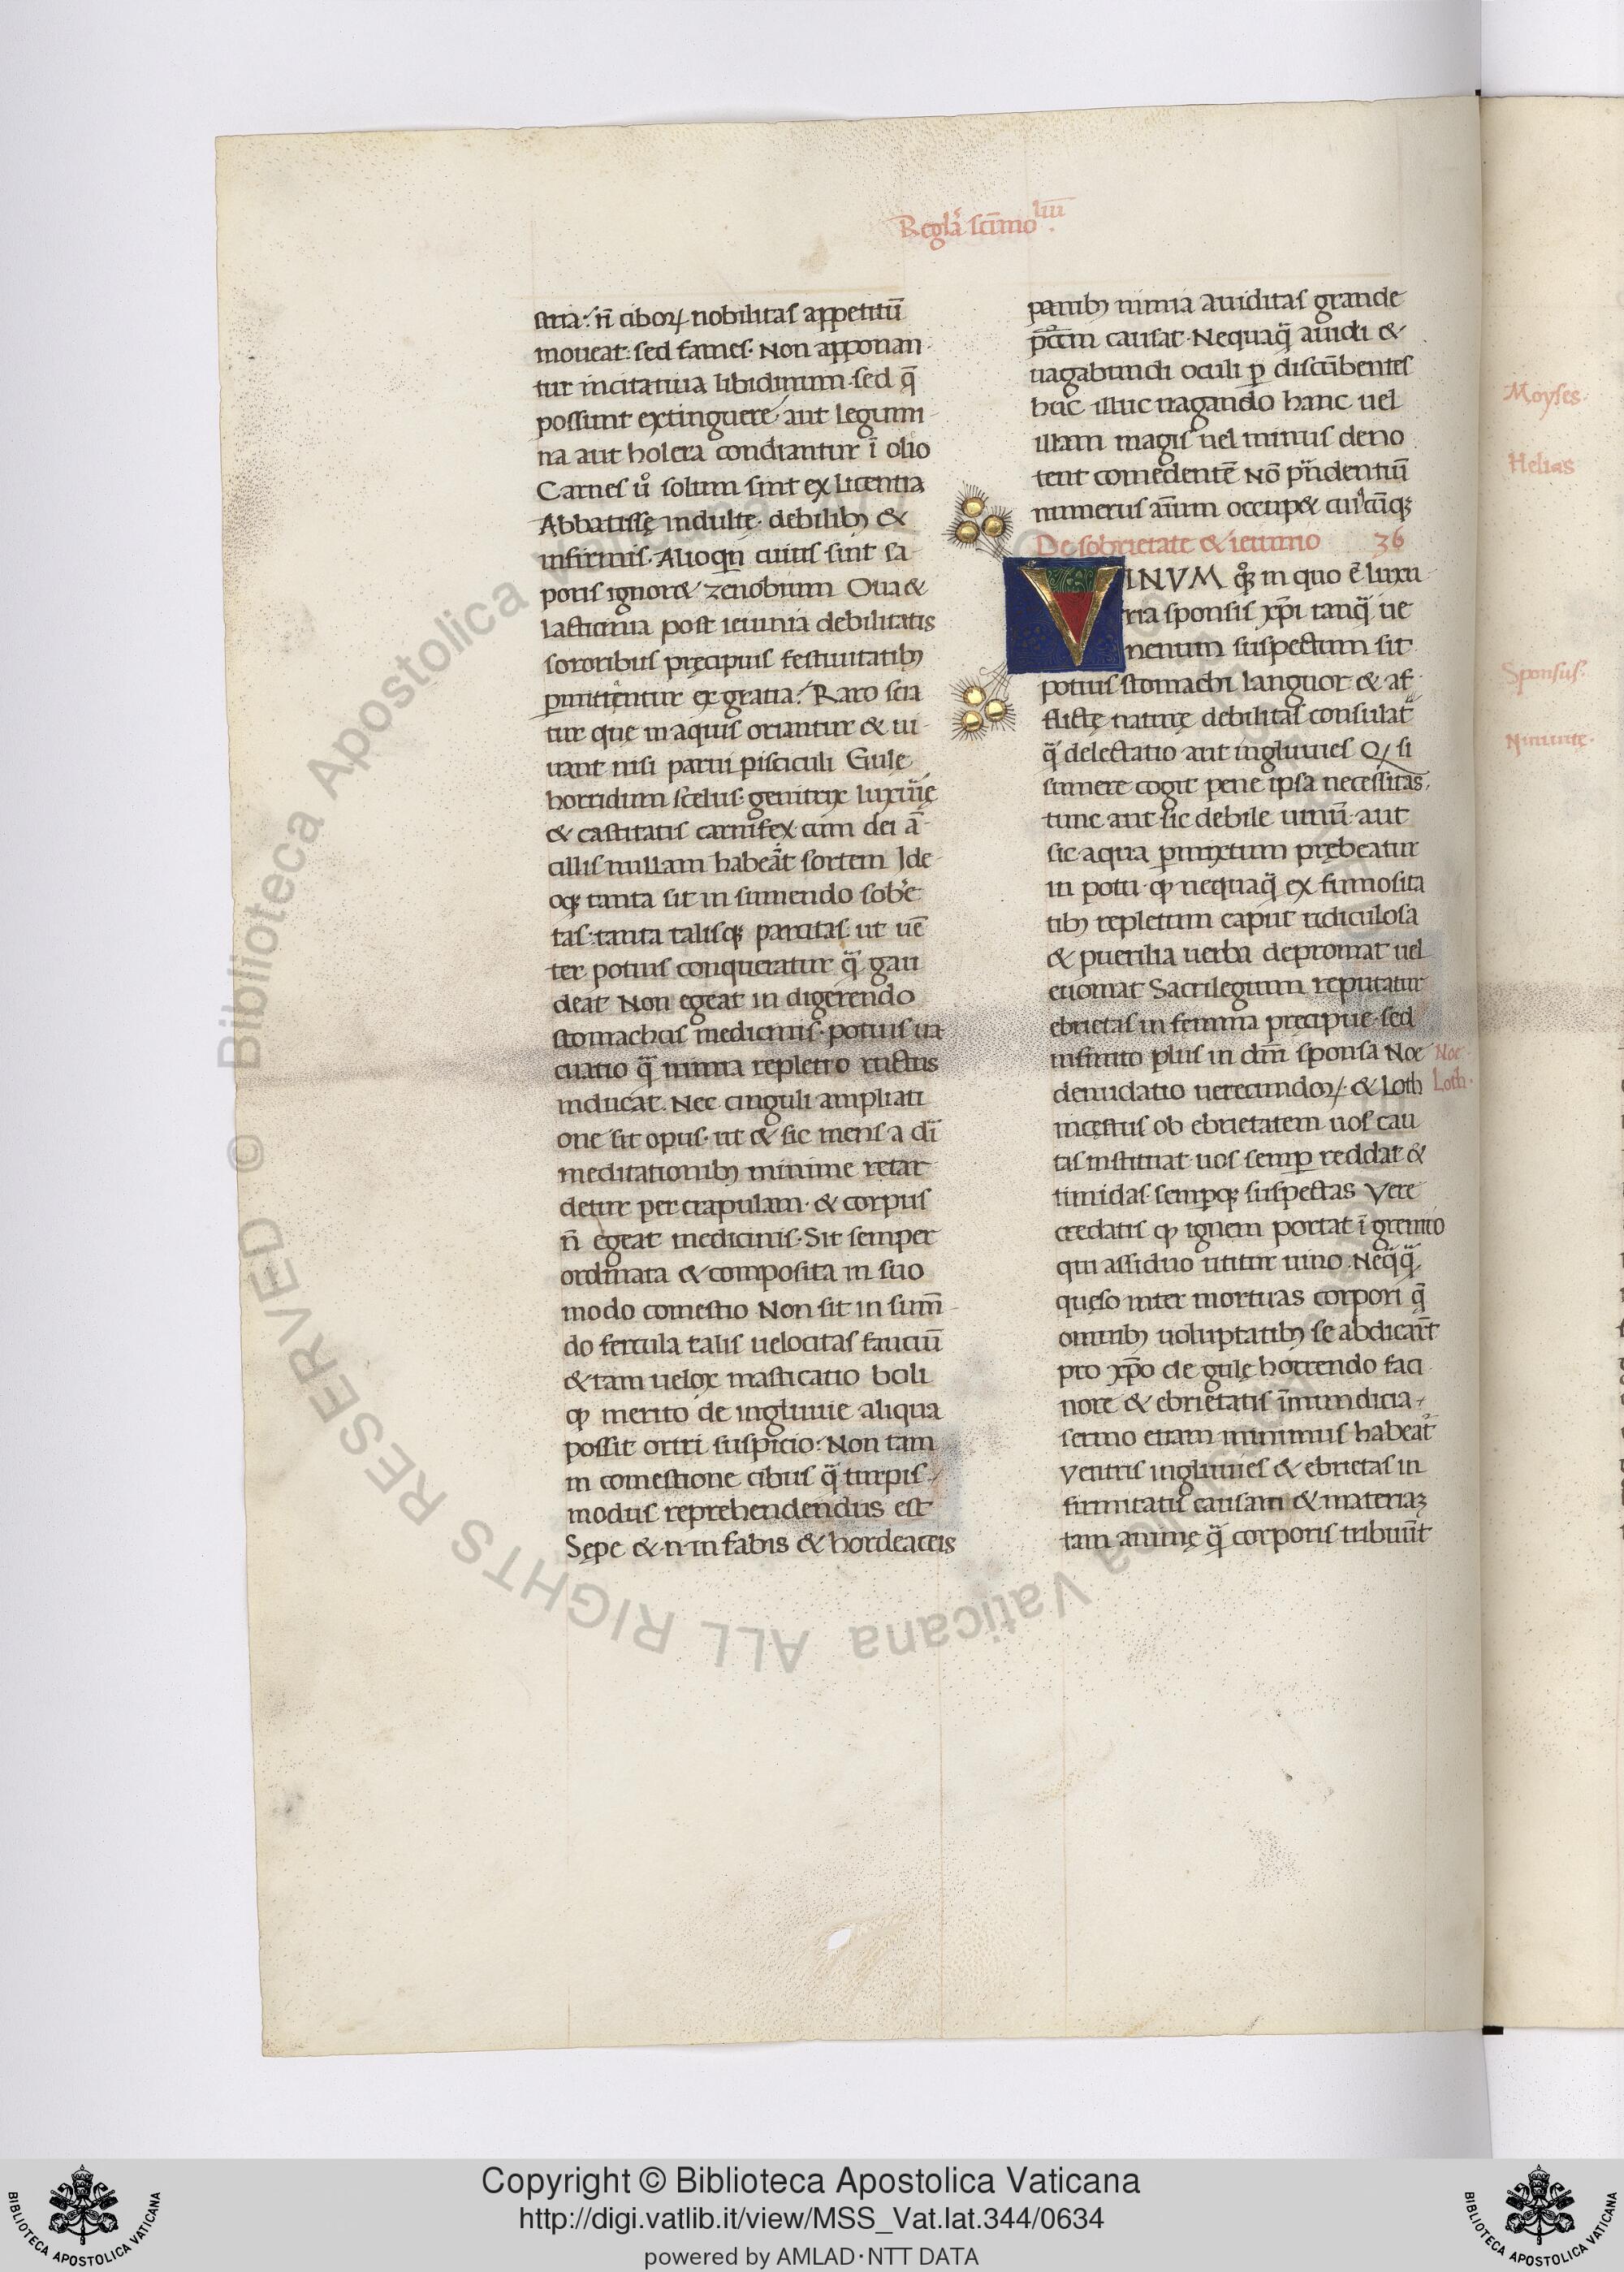 Reglã scīmo liii
stria: n̄ ciboꝝ nobilitas appetitū
moueat: sed fames. Non apponan
tur incitatiua libidinum. sed q̄
possunt extinguere. aut legumi
na aut holera condiantur ī olio
Carnes ů solum sint ex licentia
Abbatissę indultę. debilibꝫ &
infirmis. Alioqn̄ cuius sint sa
poris ignor& zenobium Oua &
lacticinia post ieiunia debilitatis
sororibus pręcipuis festiuitatibꝫ
ꝑmittentur ex gratia. Raro scia
tur que in aquis oriantur & ui
uant nisi parui pisciculi Gulę
horridum scelus. genitrix luxurię
& castitatis carnifex. cum dei ā
cillis nullam habeāt sortem Ide
oqꝫ tanta sit in sumendo sobrie
tas. tanta talisqꝫ parcitas. ut uē
ter potius conqueratur q̄ gau
deat Non egeat in digerendo
stomachus medicinis. potius ua
cuatio q̄ nimia repletio ructus
inducat. Nec cinguli ampliati
one sit opus. ut & sic mens a dī
meditationibꝫ minime retar
detur per crapulam. & corpus
n̄ egeat medicinis. Sit semper
ordinata & composita in suo
modo comestio Non sit in sumē
do fercula talis uelocitas fauciū
& tam uelox masticatio boli
ꝙ merito de ingluuie aliqua
possit oriri suspicio. Non tam
in comestione cibus q̄ turpis
modus reprehendendus est
Sępe & n in fabis & hordeaceis
panibꝫ nimia auiditas grande
pctm̄ causat. Nequaq̄ auidi &
uagabundi oculi ꝑ discūbentes
huc illuc uagando hanc uel
illam magis uel minus deno
tent comedentē Nō prandentiū
numerus aīum occup& cuicūqꝫ
De sobrietate & ieiunio 36
VINVM qꝫ in quo ē luxu
ria sponsis xp̄i tanq̄ ue
nenum suspectum sit
potius stomachi languor & af
flictę naturę debilitas consulat
q̄ delectatio aut ingluuies Qꝫ si
sumere cogit pene ipsa necessitas.
tunc aut sic debile uinū aut
sic aqua ꝑmixtum prębeatur
in potu ꝙ nequaq̄ ex fumosita
tibꝫ repletum caput ridiculosa
& puerilia uerba depromat uel
euomat Sacrilegium reputatur
ebrietas in femina precipue. sed
infinito plus in dn̄i sponsa Noe
denudatio uerecundoꝝ. & Loth
incęstus ob ebrietatem uos cau
tas instituat. uos semꝑ reddat &
timidas. semꝑqꝫ suspectas Vere
credatis ꝙ ignem portat ī gremio
qui assiduo utitur uino. Neq̄q̄
quęso inter mortuas corpori q̄
omnibꝫ uoluptatibꝫ se abdicarūt
pro xp̄o de gulę horrendo faci
nore & ebrietatis īmundicia
sermo etiam minimus habeat͛
Ventris ingluuies & ebrietas in
firmitatis causam & materiaꝫ
tam animę q̄ corporis tribuūt
Noe.
Loth.
Moyses.
Helias
Sponsus.
© Biblioteca Apostolica Vaticana ALL RIGHTS RESERVED
Copyright © Biblioteca Apostolica Vaticana
http://digi.vatlib.it/view/MSS_Vat.lat.344/0634
powered by AMLAD·NTT DATA
BIBLIOTECA APOSTOLICA VATICANA
BIBLIOTECA APOSTOLICA VATICANA